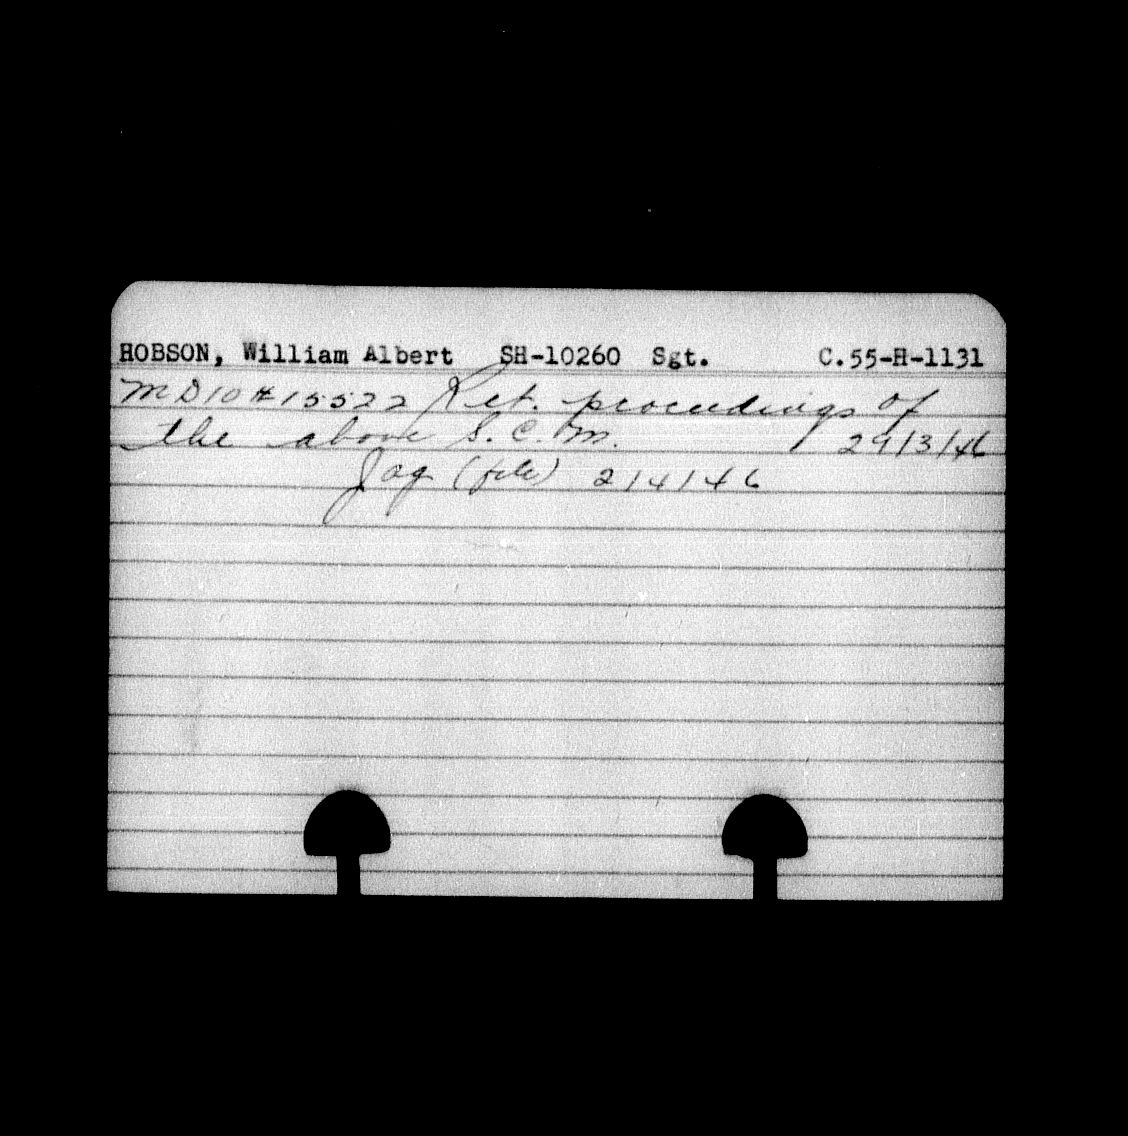 HOBSON, William Albert SH-10260 Sgt. C.55-H-1131
MD10 # 15522 Ret. proceedings of
the above S.C.M. 29/3/46
Jag (file) 2/4/46